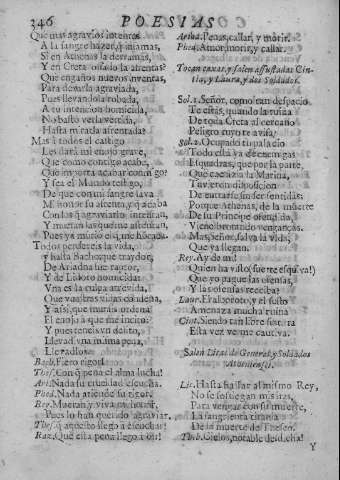 346 POESIAS
Que mas agravios intentos
A la sangre hazer, q̃ infamas,
Si en Athenas la derramas,
Y en Creta osado la afrentas?
Que engaños nuevos inventas,
Para dexarla agraviada,
Pues llevandola robada,
A tu intencion homicida,
No bastò verla vertida,
Hasta mirarla afrentada?
Mas à todos el castigo
Les darà mi enojo grave,
Que como contigo acabe,
Que importa acabar comigo?
Y sea el Mundo testigo,
De que con mi sangre lava
Mi honor su afrenta, y q̃ acaba
Con los q̃ agraviarlo intentan,
Y mueran los que me afrentan,
Pues ya murio el que me
Todos perdereis la vida,
y hasta Bacho por traydor,
De Ariadna fue raptor,
Y de homicida,
Vna es la culpa atrevida,
Que vuestras vidas condena,
Y assi, que murais ordena
El enojo à que me incito:
Y pues teneis vn delito,
Llevad vna misma pena,
Llevadlos.
Bach. Fiero rigor!
Thes. Con q̃ pena el alma lucha!
Ari. Nada su crueldad escucha.
Phed. Nada atiende su rigor.
Rey. Mueran, y viva mi honor,
Pues lo han querido agraviar.
Thes. q̃ aquesto llego à escuchar!
Raz. Que esta pena llego à oir!
Ariad. Penas, callar, y morir.
Phed. Amor, morir, y callar.
Tocan caxas, y salen assustadas Cintia, y Laura, y dos Soldados.
Sol. 1. Señor, como tan despacio
Te estàs, quando la ruina
De toda Creta al cercano
Peligro tuyo te avisa?
Sol. 2. Ocupado tu palacio
Todo està ya de enemigas
Esquadras, que por la parte,
Que cae azia la Marina,
Tuvieron disposicion
De entrarse sin ser sentidas:
Porque Athenas, de la muerte
De su Principe ofendida,
Viene brotando venganças.
Mas, señor, salva la vida,
Que ya llegan.
Rey. Ay de mi!
Quien ha visto (suerte esquiva!)
Que yo pague las ofensas,
Y las ofensas reciba?
Laur. El alboroto, y el susto
Amenaza mucha ruina
Cint. Siendo tan libre
Esta vez me cautiva.
Salen Licas de General, y Soldados Atenienses.
Lic. Hasta hallar al mismo Rey,
No se sosiegan mis iras,
Para vengar con su muerte,
La sangrienta tirania
De la muerte de Theseo.
Theb. Cielos, notable desdicha!
Y